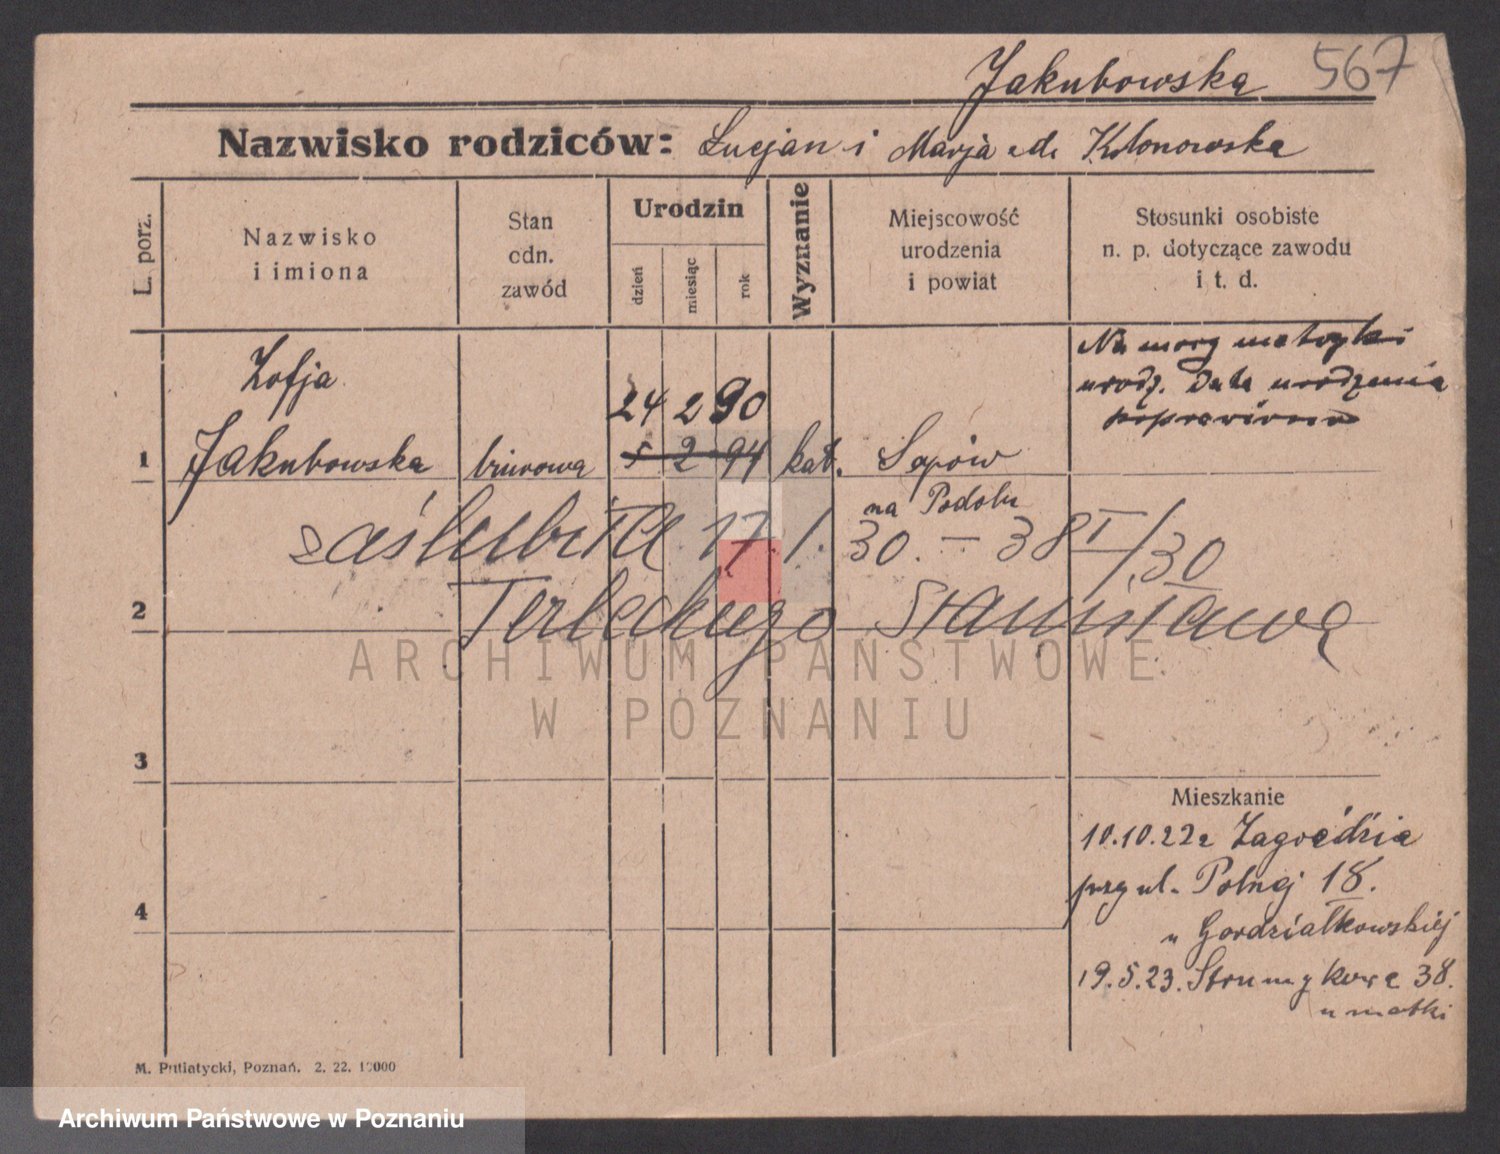 Jakubowska 567
Nazwisko rodziców: Lucjan i Marja Klonowska
L. porz.
Nazwisko
i imiona
Stan
odn.
zawód
Urodzin
dzień
miesiąc
rok
Wyznanie
Miejscowość
urodzenia
i powiat
Stosunki osobiste
n. p. dotyczące zawodu
i t. d.
Na mocy metryki
urodz. Data urodzenia
poprawiona
Zofja
24 2 90
1 Jakubowska biurowa 5 2 94 kat. Sapów
na Podolu
zaślubiła 17. 1. 30. — 38 I/30
2 Terleckiego Stanisława
ARCHIWUM PAŃSTWOWE
W POZNANIU
3
Mieszkanie
10.10.22 z Zagrodzia
przy ul. Polnej 18.
4
u Gordziałkowskiej
19.5.23. Strumykowa 38.
u matki
M. Putiatycki, Poznań. 2. 22. 10000
Archiwum Państwowe w Poznaniu